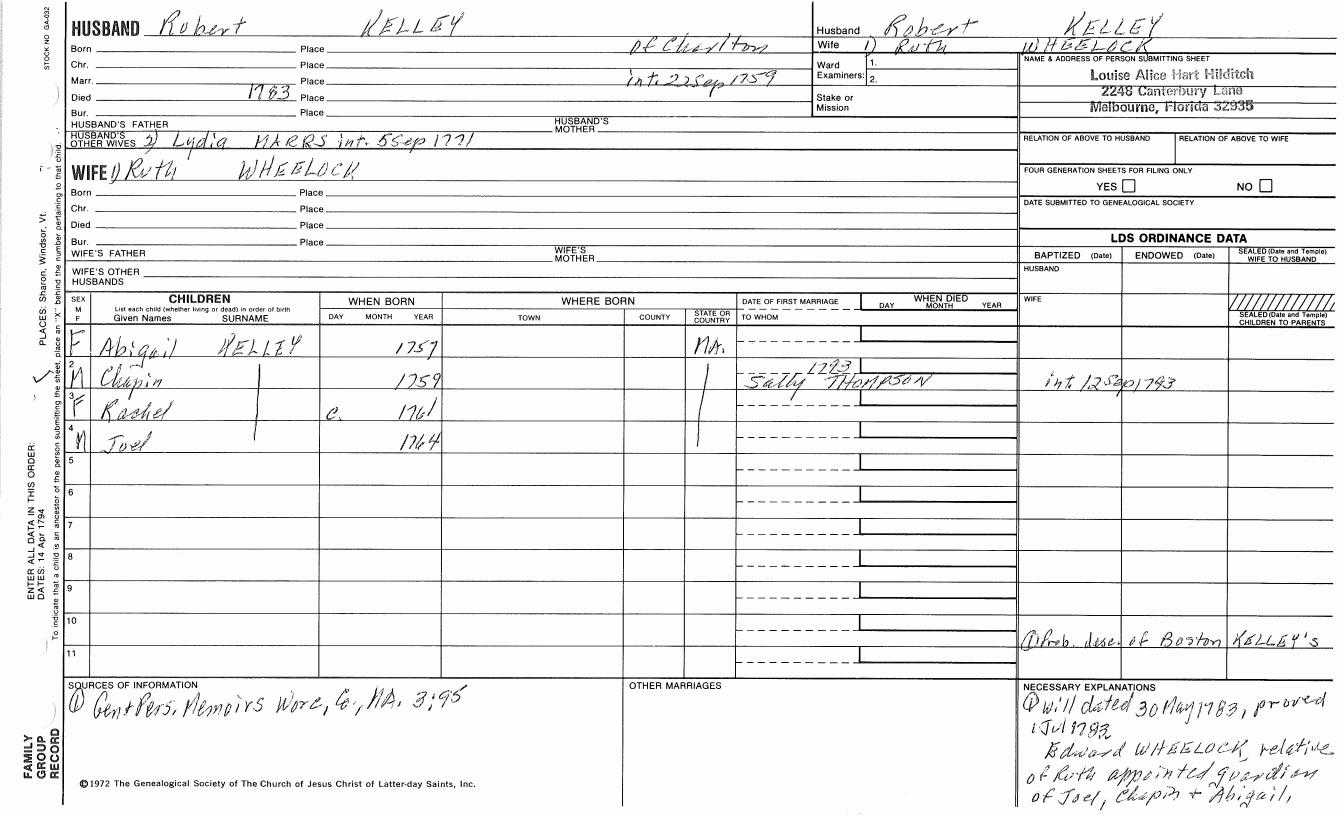 STOCK NO GA-032
PLACES: Sharon, Windsor, Vt.
ENTER ALL DATA IN THIS ORDER:
DATES: 14 Apr 1794
To indicate that a child is an ancestor of the person submitting the sheet, place an "X" behind the number pertaining to that child.
FAMILY
GROUP
RECORD
HUSBAND Robert KELLEY
Born Place of Charlton
Chr. Place
Marr. Place int. 22 Sep 1759
Died 1783 Place
Bur. Place
HUSBAND'S FATHER HUSBAND'S MOTHER
HUSBAND'S OTHER WIVES 2) Lydia MARRS int. 5 Sep 1771
WIFE 1) Ruth WHEELOCK
Born Place
Chr. Place
Died Place
Bur. Place
WIFE'S FATHER WIFE'S MOTHER
WIFE'S OTHER HUSBANDS
Husband Robert KELLEY
Wife 1) Ruth WHEELOCK
Ward Examiners: 1.
2.
Stake or Mission
NAME & ADDRESS OF PERSON SUBMITTING SHEET
Louise Alice Hart Hilditch
2248 Canterbury Lane
Melbourne, Florida 32935
RELATION OF ABOVE TO HUSBAND RELATION OF ABOVE TO WIFE
FOUR GENERATION SHEETS FOR FILING ONLY
YES NO
DATE SUBMITTED TO GENEALOGICAL SOCIETY
LDS ORDINANCE DATA
BAPTIZED (Date) ENDOWED (Date) SEALED (Date and Temple) WIFE TO HUSBAND
HUSBAND
WIFE
SEALED (Date and Temple) CHILDREN TO PARENTS
SEX M F CHILDREN WHEN BORN WHERE BORN DATE OF FIRST MARRIAGE WHEN DIED
List each child (whether living or dead) in order of birth
Given Names SURNAME DAY MONTH YEAR TOWN COUNTY STATE OR COUNTRY TO WHOM DAY MONTH YEAR
F Abigail KELLEY 1757 MA.
2 M Chapin 1759 1793 Sally THOMPSON int. 12 Sep 1793
3 F Rachel c. 1761
4 M Joel 1764
5
6
7
8
9
10
11
① Prob. desc. of Boston KELLEY's
SOURCES OF INFORMATION
① Gen + Pers. Memoirs Worc, Co., MA. 3:95
OTHER MARRIAGES
NECESSARY EXPLANATIONS
① Will dated 30 May 1783, proved
1 Jul 1783
Edward WHEELOCK, relative
of Ruth appointed guardian
of Joel, Chapin + Abigail,
©1972 The Genealogical Society of The Church of Jesus Christ of Latter-day Saints, Inc.